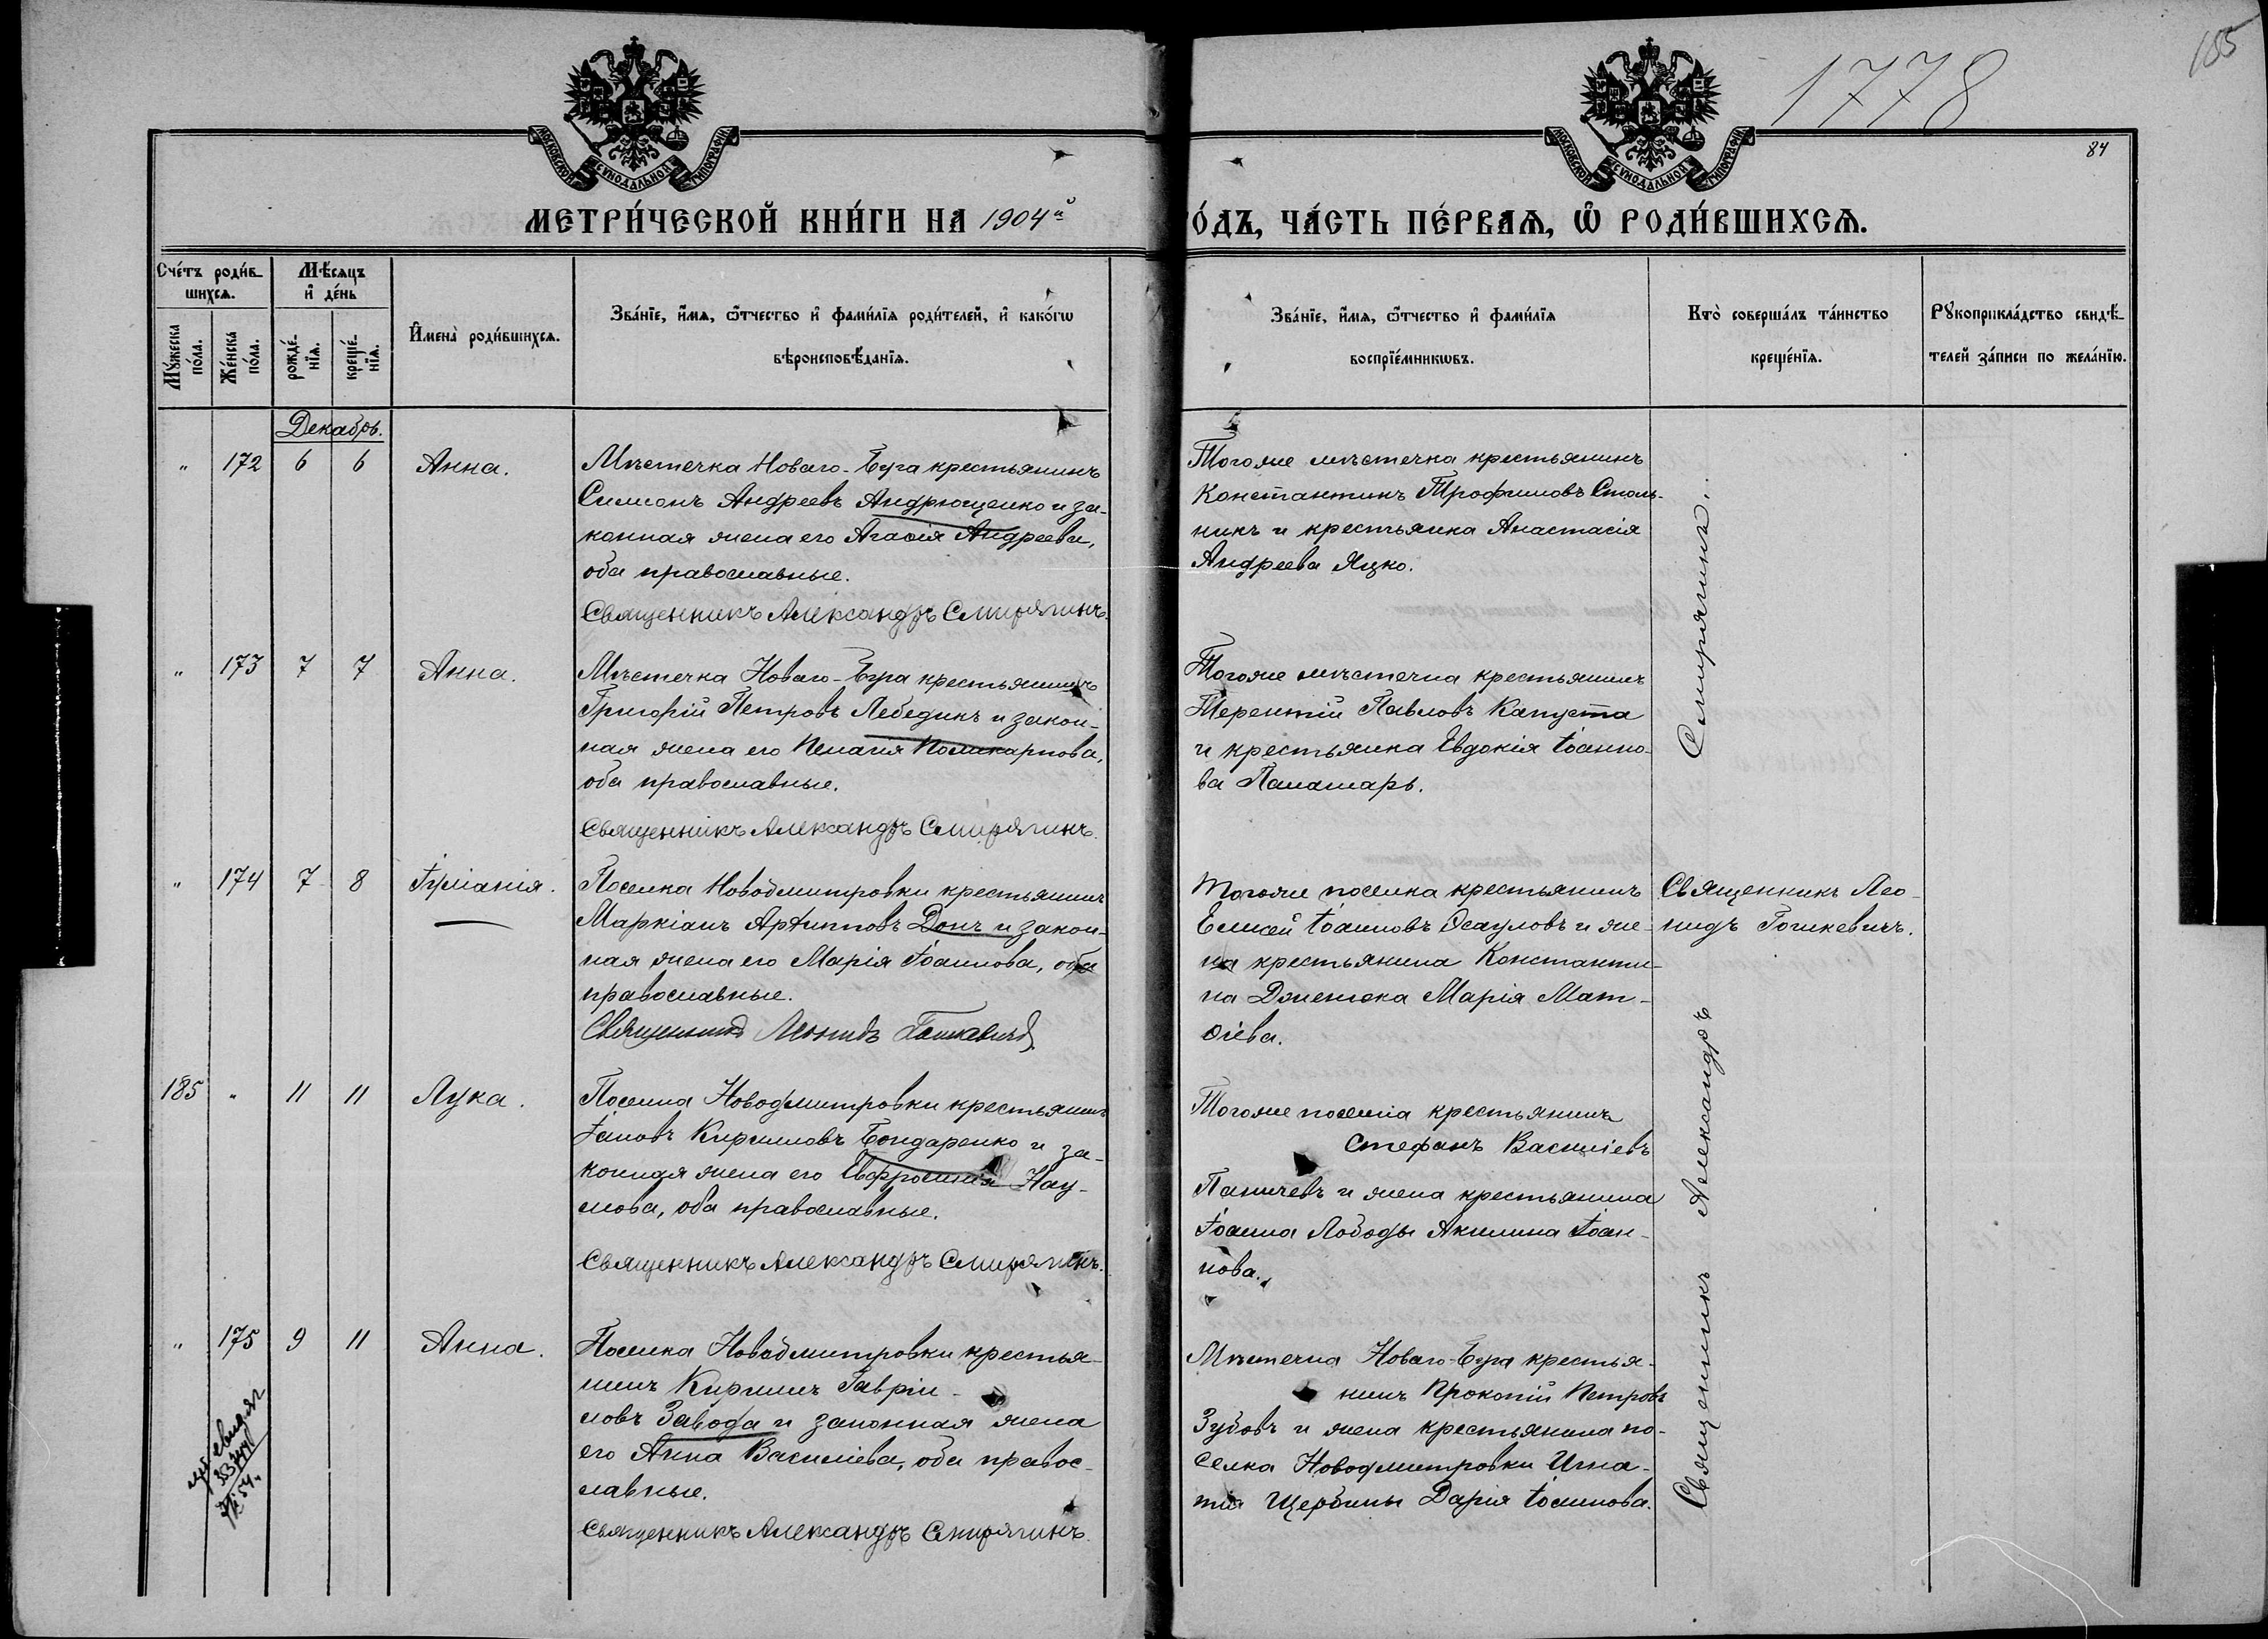 1778
185
84
МОСКОВСКОЙ СѴНОДАЛЬНОЙ ТИПОГРАФІИ
МОСКОВСКОЙ СѴНОДАЛЬНОЙ ТИПОГРАФІИ
МЕТРИ́ЧЕСКОЙ КНИ́ГИ НА 1904й
ГО́ДЪ, ЧА́СТЬ ПЕ́РВАѦ, Ѡ҆ РОДИ́ВШИХСѦ.
Сче́тъ роди́в-
шихсѧ.
Мꙋ́жеска по́ла.
Же́нска по́ла.
Мѣ́сѧцъ
и҆ де́нь
рожде́-
нїѧ.
креще́-
нїѧ.
И҆мена̀ роди́вшихсѧ.
Зва́нїе, и҆́мѧ, ѻ҆́тчество и҆ фами́лїѧ роди́телей, и҆ како́гѡ
вѣроисповѣ́данїѧ.
Зва́нїе, и҆́мѧ, ѻ҆́тчество и҆ фами́лїѧ
воспрїе́мникѡвъ.
Кто̀ соверша́лъ та́инство
креще́нїѧ.
Рꙋкоприкла́дство свидѣ́-
телей за́писи по жела́нїю.
Декабрь.
" 172 6 6 Анна.
Мѣстечка Новаго-Буга крестьянинъ
Симеонъ Андреевъ Андрющенко и за-
конная жена его Агаѳія Андреева,
оба православные.
Священникъ Александръ Смирягинъ.
Тогоже мѣстечка крестьянинъ
Константинъ Трофимовъ Столь-
никъ и крестьянка Анастасія
Андреева Яцко.
" 173 7 7 Анна.
Мѣстечка Новаго-Буга крестьянинъ
Григорій Петровъ Лебединъ и закон-
ная жена его Пелагія Поликарпова,
оба православные.
Священникъ Александръ Смирягинъ.
Тогоже мѣстечка крестьянинъ
Терентій Павловъ Капуста
и крестьянка Евдокія Іоанно-
ва Паламарь.
" 174 7 8 Іуліанія.
Поселка Новодмитровки крестьянинъ
Маркіанъ Архиповъ Донъ и закон-
ная жена его Марія Іоаннова, оба
православные.
Священникъ Леонидъ Гошкевичъ.
Тогоже поселка крестьянинъ
Елисей Іоанновъ Осауловъ и же-
на крестьянина Константи-
на Доменюка Марія Мат-
ѳіева.
Священникъ Лео-
нидъ Гошкевичъ.
185 " 11 11 Лука.
Поселка Новодмитровки крестьянинъ
Іаковъ Кирилловъ Бондаренко и за-
конная жена его Евфросинія Нау-
мова, оба православные.
Священникъ Александръ Смирягинъ.
Тогоже поселка крестьянинъ
Стефанъ Василіевъ
Паничевъ и жена крестьянина
Іоанна Лободы Акилина Іоан-
нова.
" 175 9 11 Анна.
Поселка Новодмитровки крестья-
нинъ Кириллъ Гавріи-
ловъ Завода и законная жена
его Анна Василіева, оба правос-
лавные.
Священникъ Александръ Смирягинъ.
Мѣстечка Новаго-Буга крестья-
нинъ Прокопій Петровъ
Зубовъ и жена крестьянина по-
селка Новодмитровки Игна-
тія Щербины Дарія Іоаннова.
Священникъ Александръ Смирягинъ.